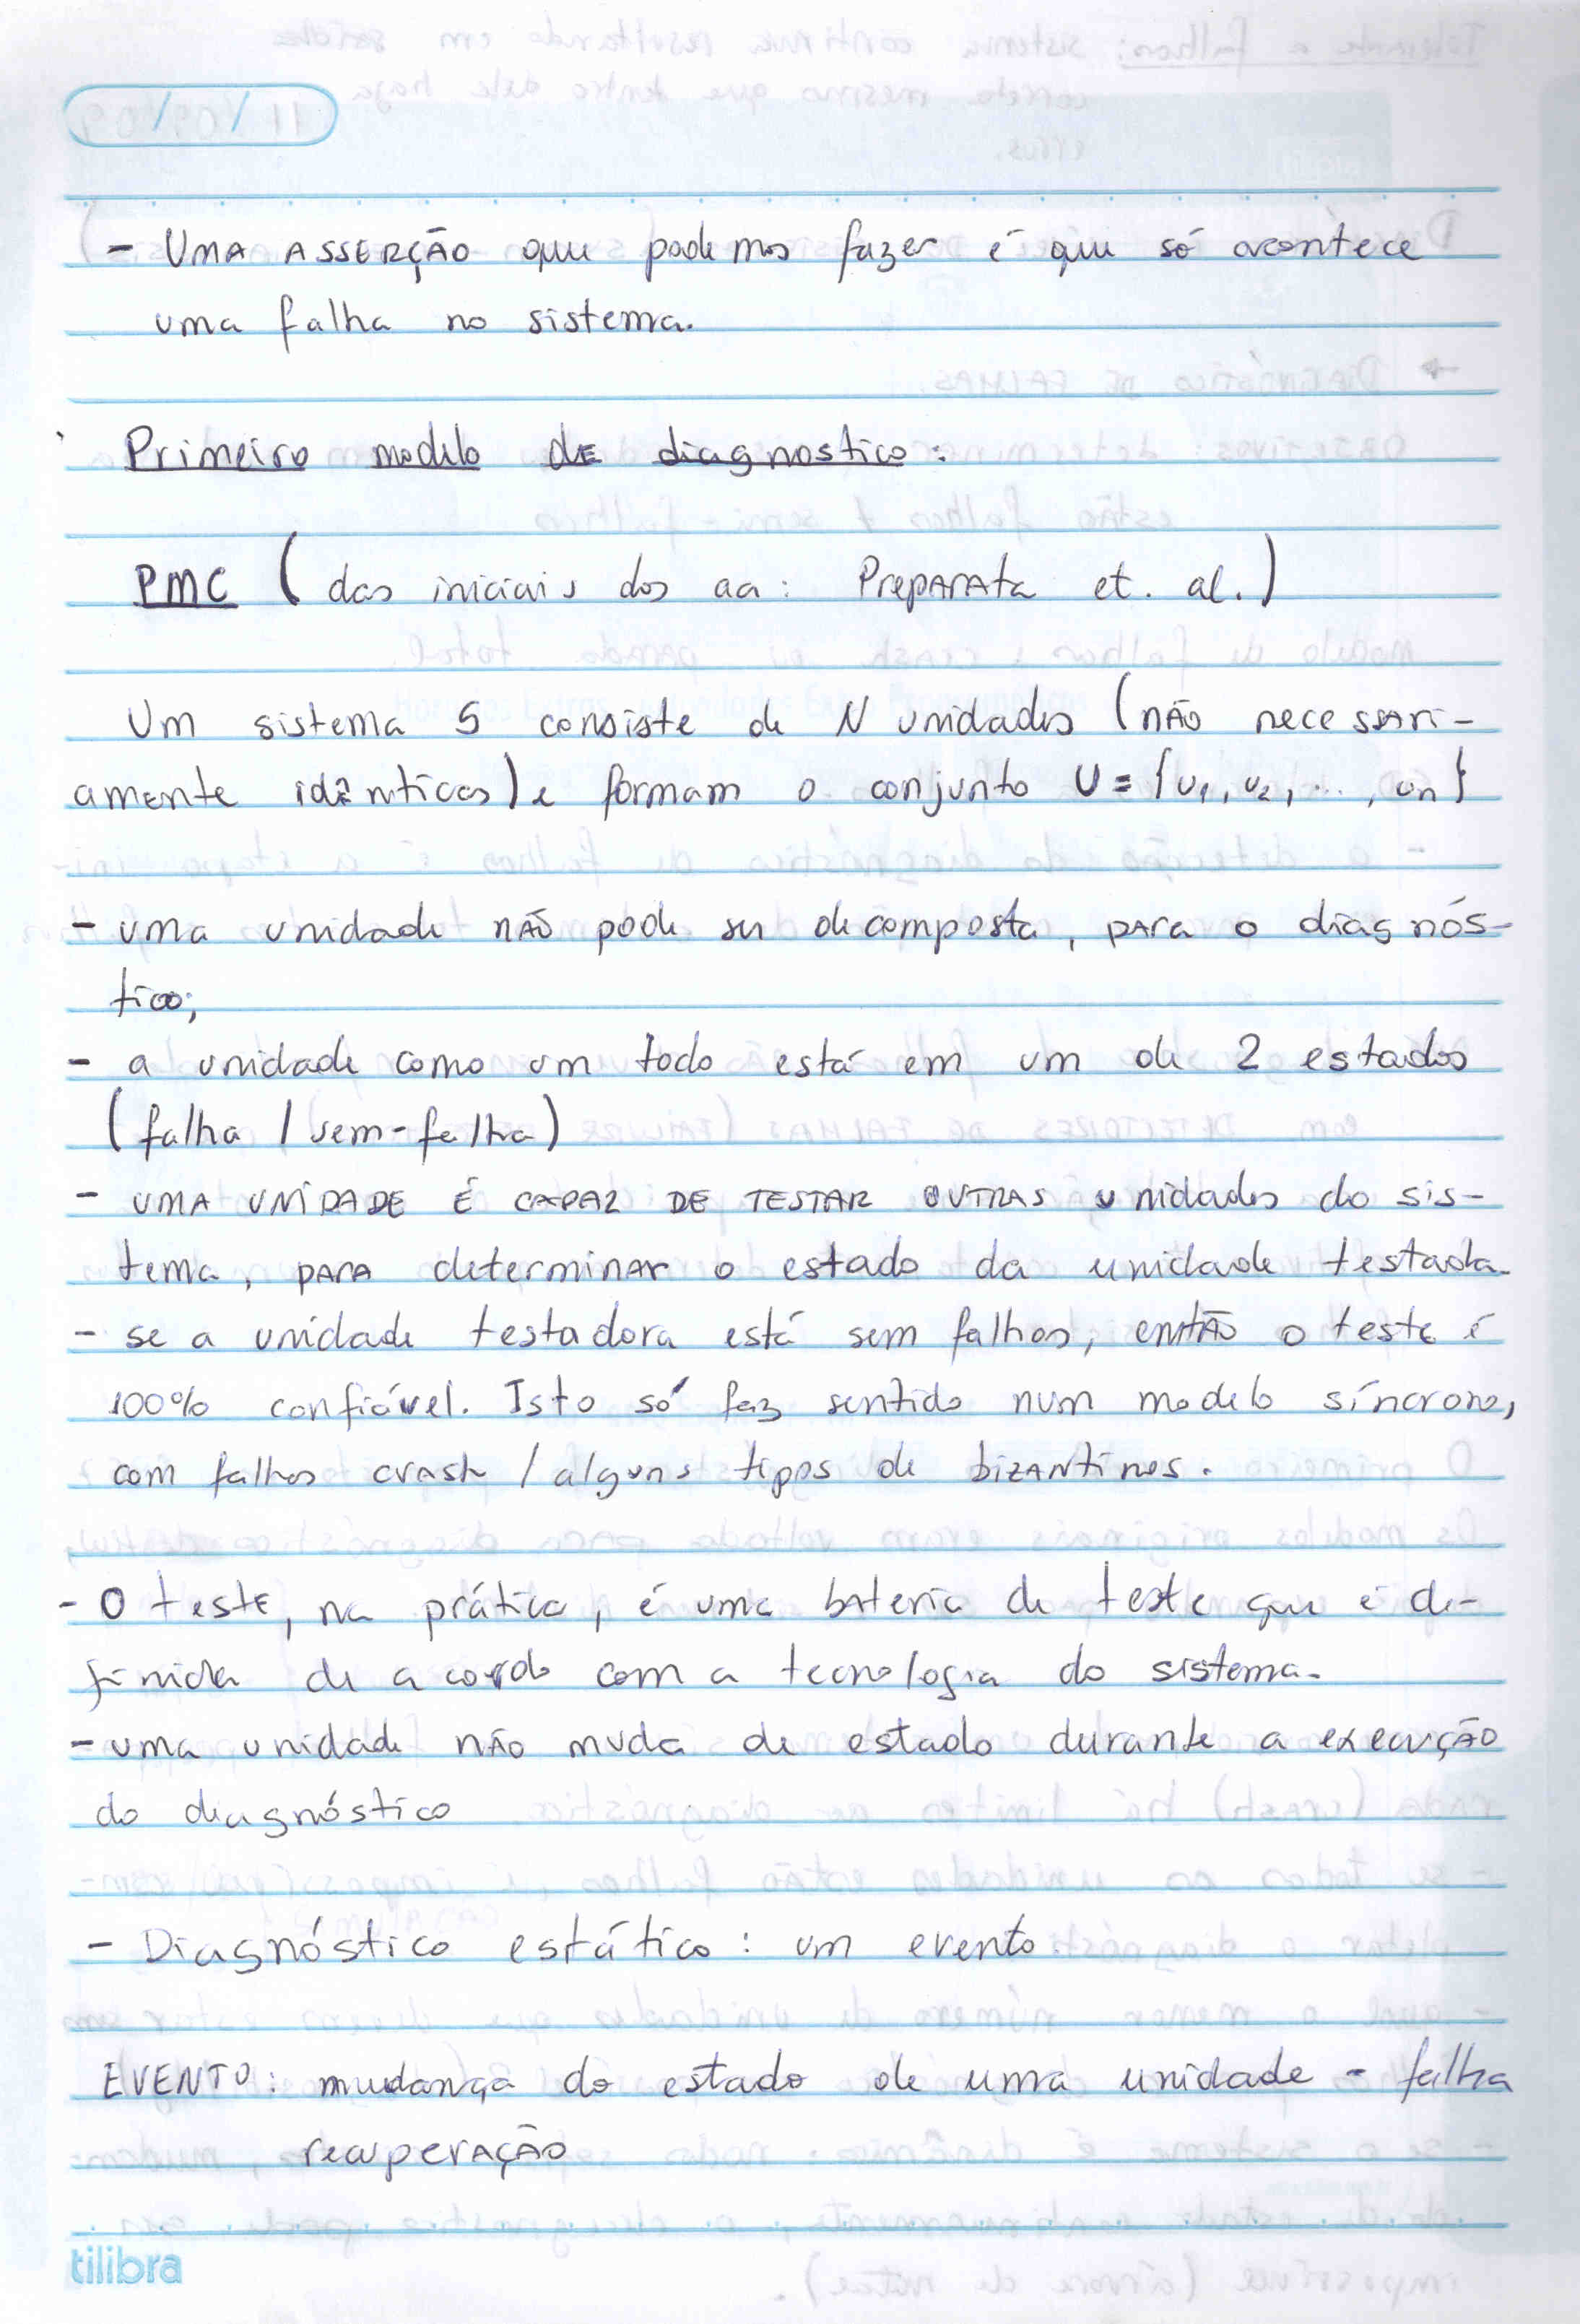 - UMA ASSERÇÃO que podemos fazer é que só acontece
uma falha no sistema.
Primeiro modelo de diagnostico:
PMC (das iniciais dos aa: Preparata et. al.)
Um sistema S consiste de N unidades (não necessari-
amente idênticas) e formam o conjunto U = {u1, u2, ..., un}
- uma unidade não pode ser decomposta, para o diagnós-
tico;
- a unidade como um todo está em um de 2 estados
(falha / sem-falha)
- UMA UNIDADE É CAPAZ DE TESTAR OUTRAS unidades do sis-
tema, para determinar o estado da unidade testada.
- se a unidade testadora está sem falhas, então o teste é
100% confiável. Isto só faz sentido num modelo síncrono,
com falhas crash / alguns tipos de bizantinas.
- O teste, na prática, é uma bateria de teste que é de-
finida de acordo com a tecnologia do sistema.
- uma unidade não muda de estado durante a execução
do diagnóstico
- Diagnóstico estático: um evento.
EVENTO: mudança do estado de uma unidade - falha
recuperação
tilibra